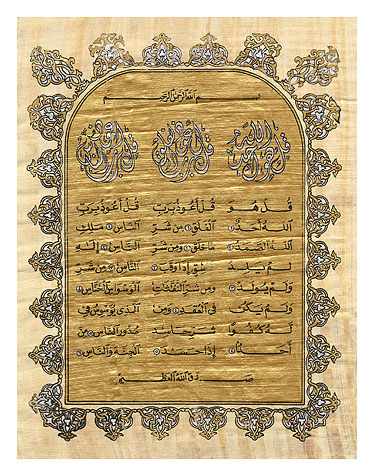 بسم الله الرحمن الرحيم
قل هو الله أحد
قل أعوذ برب الفلق
قل أعوذ برب الناس
قُل هُوَ
اللهُ أَحَدٌ ١
اللهُ الصَّمَدُ ٢
لَم يَلِد
وَلَم يُولَد ٣
وَلَم يَكُن
لَهُ كُفُوًا
أَحَدٌ ٤
قُل أَعُوذُ بِرَبِّ
الفَلَقِ ١ مِن شَرِّ
مَا خَلَقَ ٢ وَمِن شَرِّ
غَاسِقٍ إِذَا وَقَبَ ٣
وَمِن شَرِّ النَّفَّاثَاتِ
فِي العُقَدِ ٤ وَمِن
شَرِّ حَاسِدٍ
إِذَا حَسَدَ ٥
قُل أَعُوذُ بِرَبِّ
النَّاسِ ١ مَلِكِ
النَّاسِ ٢ إِلَهِ
النَّاسِ ٣ مِن شَرِّ
الوَسوَاسِ الخَنَّاسِ ٤
الَّذِي يُوَسوِسُ فِي
صُدُورِ النَّاسِ ٥ مِنَ
الجِنَّةِ وَالنَّاسِ ٦
صدق الله العظيم